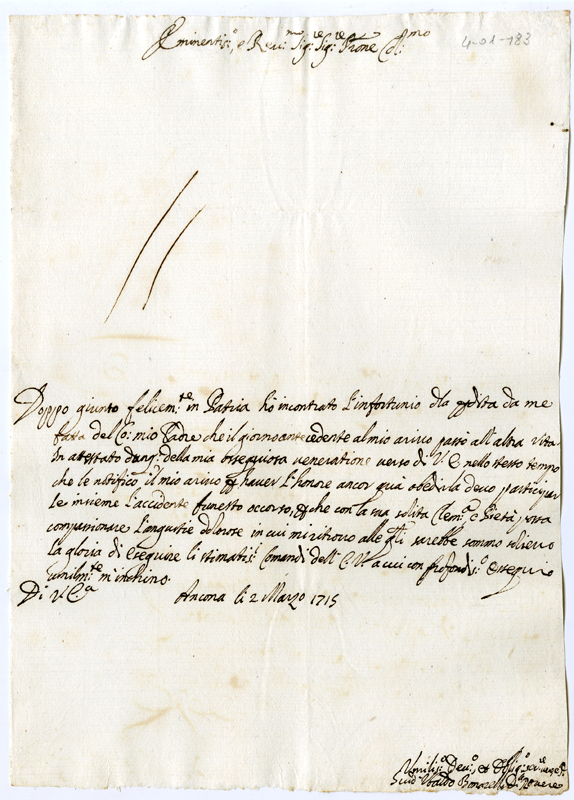 Eminentis.º, e Reu.mo Sig.re Sig.re Prone Col.mo
4-01-183
Doppo giunto felicem.te in Patria hò incontrato l'infortunio d'la pdita da me
fatta del Co: mio Padre che il giorno antecedente al mio arivo passò all'altra vita
In attestato dunq; della mia ossequiosa veneratione verso di V. E. nello stesso tempo
che le notifico il mio arivo p hauer l'honore ancor quà obedirla deuo participar
le insieme l'accidente funesto occorso, p che con la sua solita Clem.a e Pietà possa
compassionare l'angustie dolorose in cui mi ritrouo alle q.li sarebbe sommo solieuo
la gloria di eseguire li stimatis.i Comandi dell'E. V. a cui con profondis.º ossequio
umilm.te m'inchino.
Di V. E.a Ancona li 2 Marzo 1715
Umilis.º Deu.º et Oblig.º
Ubaldo